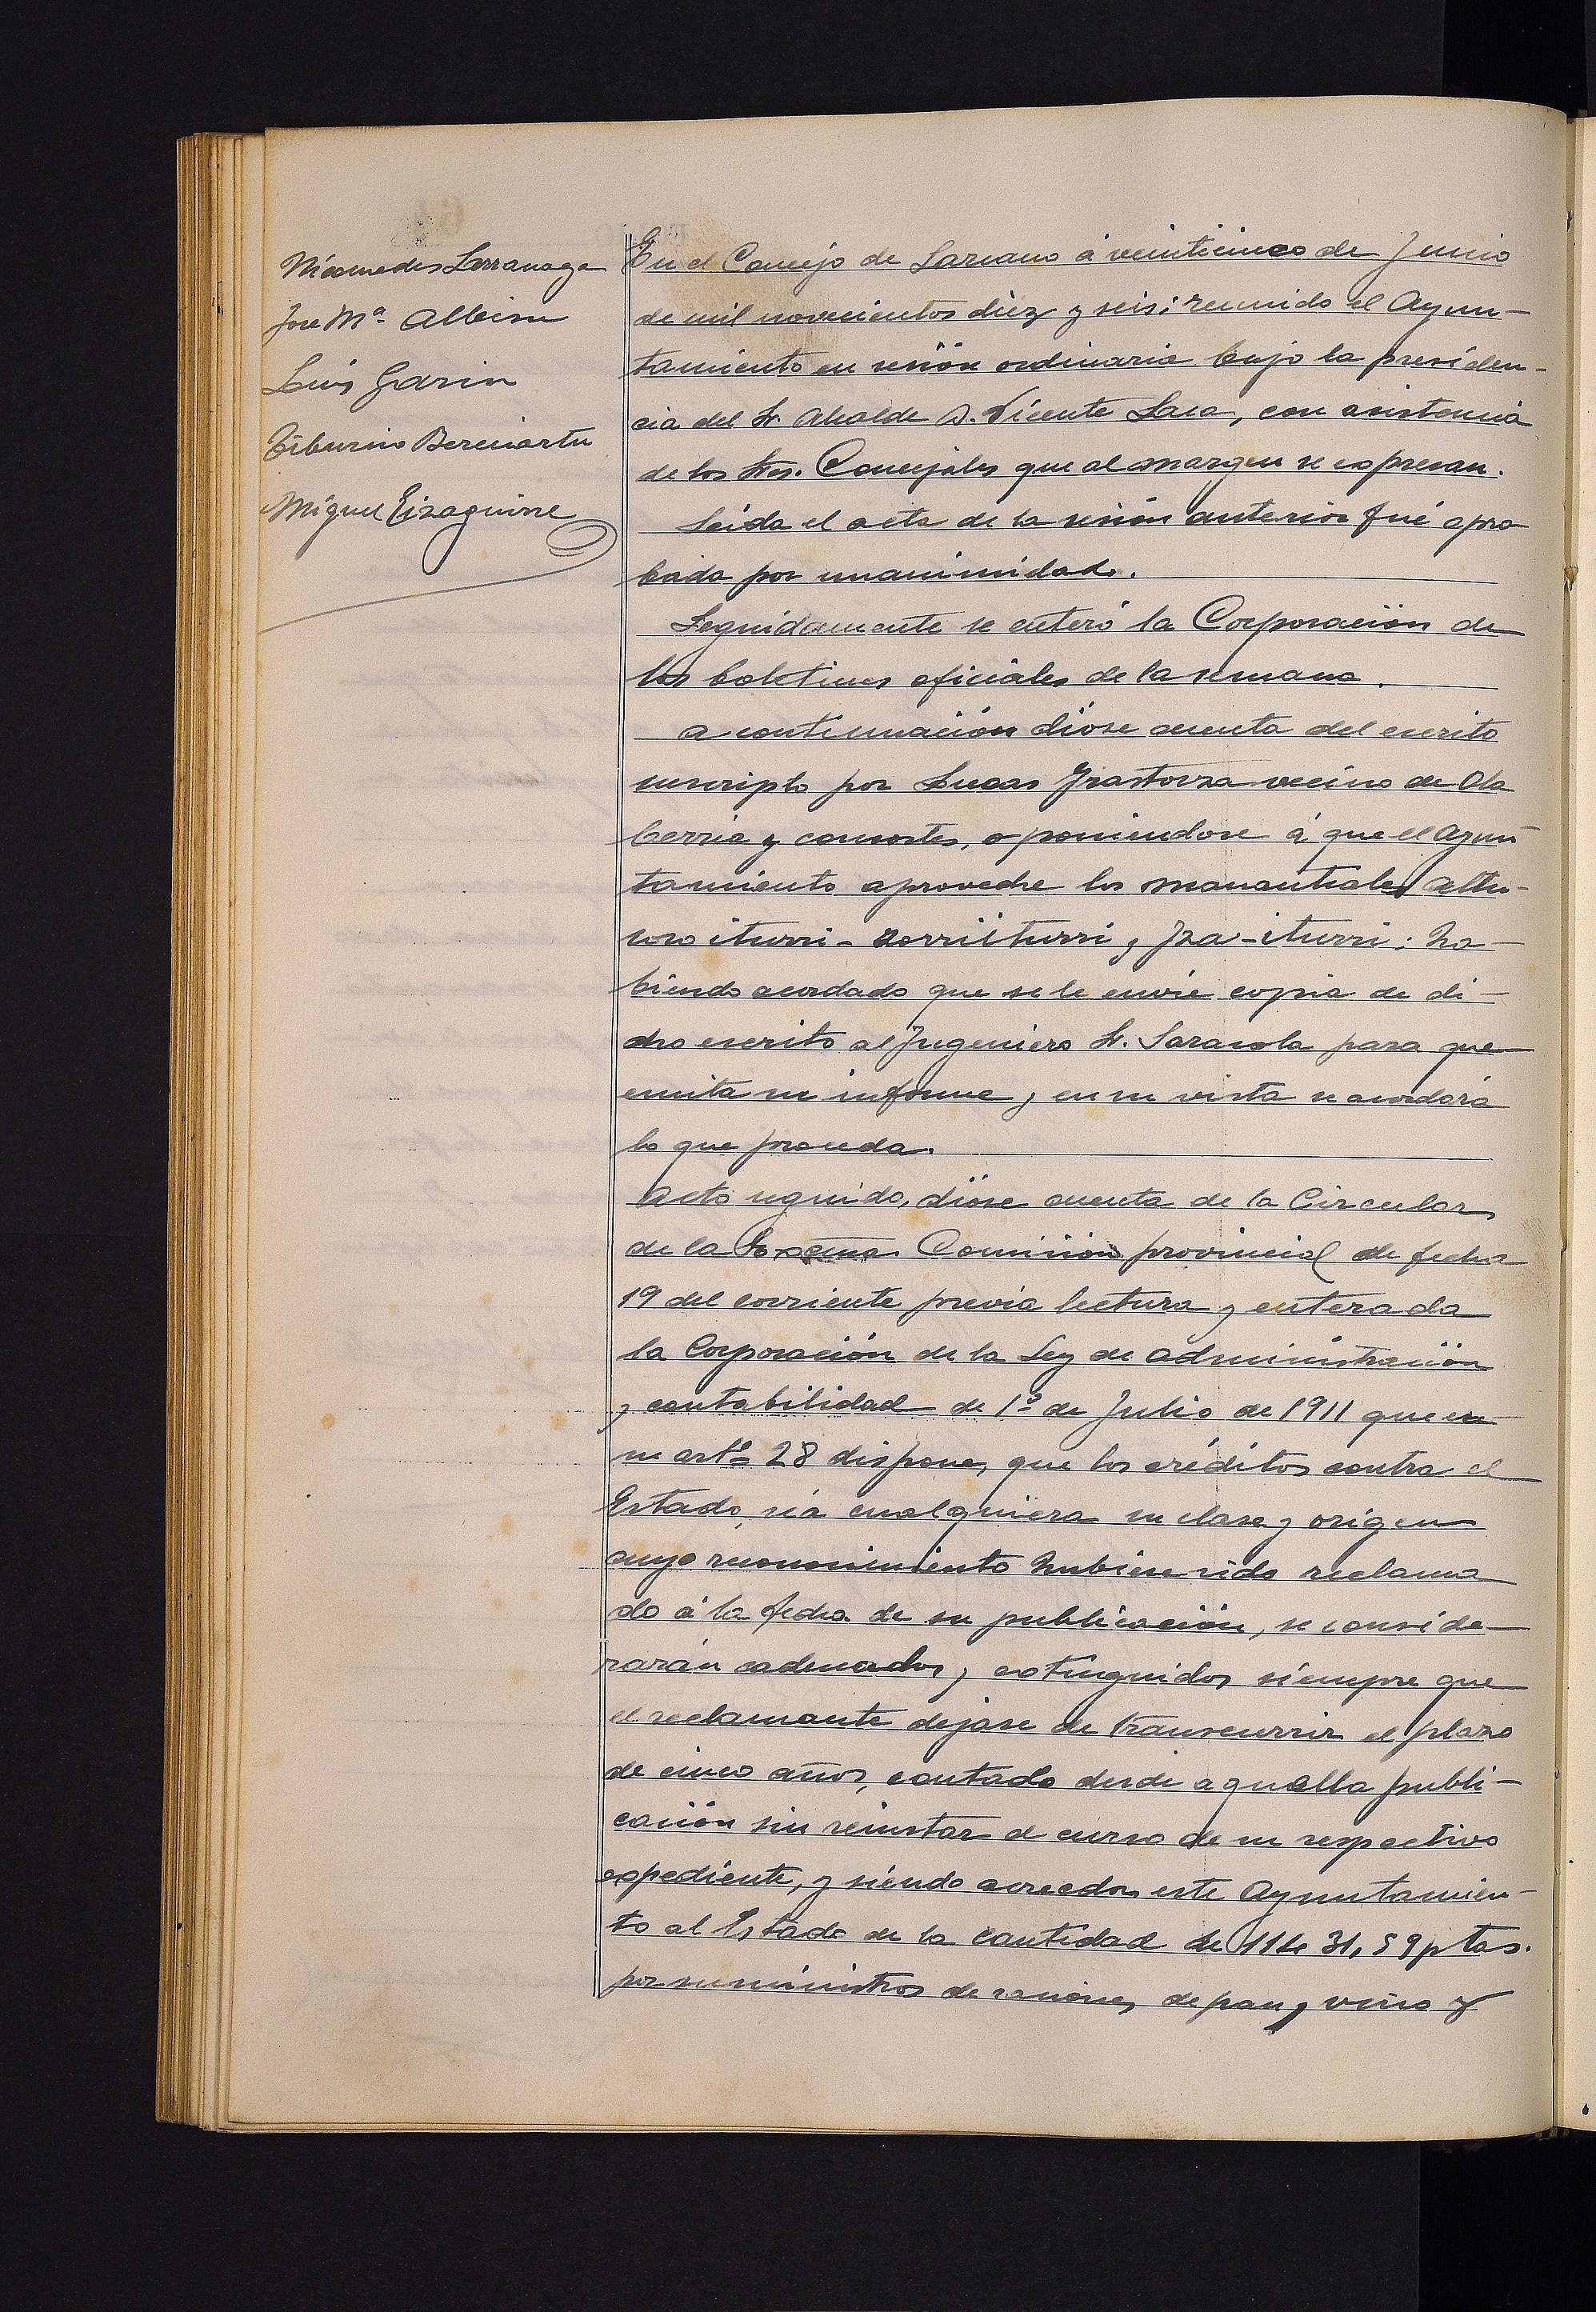 Nicomedes Larrañaga
Jose Mª. Albisu
Luis Garin
Tiburcio Bereciartu
Miguel Eizaguirre
En el Concejo de Lazcano á veinticinco de Junio
de mil novecientos diez y seis: reunido el Ayun-
tamiento en sesión ordinaria bajo la presiden-
cia del Sr. Alcalde D. Vicente Lasa, con asistencia
de los Sres. Concejales que al margen se expresan.
Leida el acta de la sesión anterior fué apro
bada por unanimidad.
Seguidamente se enteró la Corporación de
los boletines oficiales de la semana.
A continuación dióse cuenta del escrito
suscripto por Lucas Yrastorza vecino de Ola
berria y consortes, oponiendose á que el Ayun
tamiento aproveche los manantiales
iturri - Zorriiturri y Iza-iturri: ha-
biendo acordado que se le envie copia de di-
cho escrito al Ingeniero Sr. Sarasola para que
emita su informe y en su vista se acordará
lo que proceda.
Acto seguido, dióse cuenta de la Circular
de la Excma Comisión provincial de fecha
19 del corriente previa lectura y enterada
la Corporación de la Ley de administración
y contabilidad de 1º de Julio de 1911 que en
su artº 28 dispone, que los créditos contra el
Estado, sea cualquiera su clase y origen
cuyo reconocimiento hubiese sido reclama
do á la fecha de su publicación, se conside-
rarán caducados y extinguidos siempre que
el reclamante dejase de transcurrir el plazo
de cinco años, contado desde aquella publi-
cación sin reinstar el curso de su respectivo
expediente, y siendo acreedor este Ayuntamien-
to al Estado de la cantidad de 11431,59 ptas.
por suministros de raciones de pan y vino y